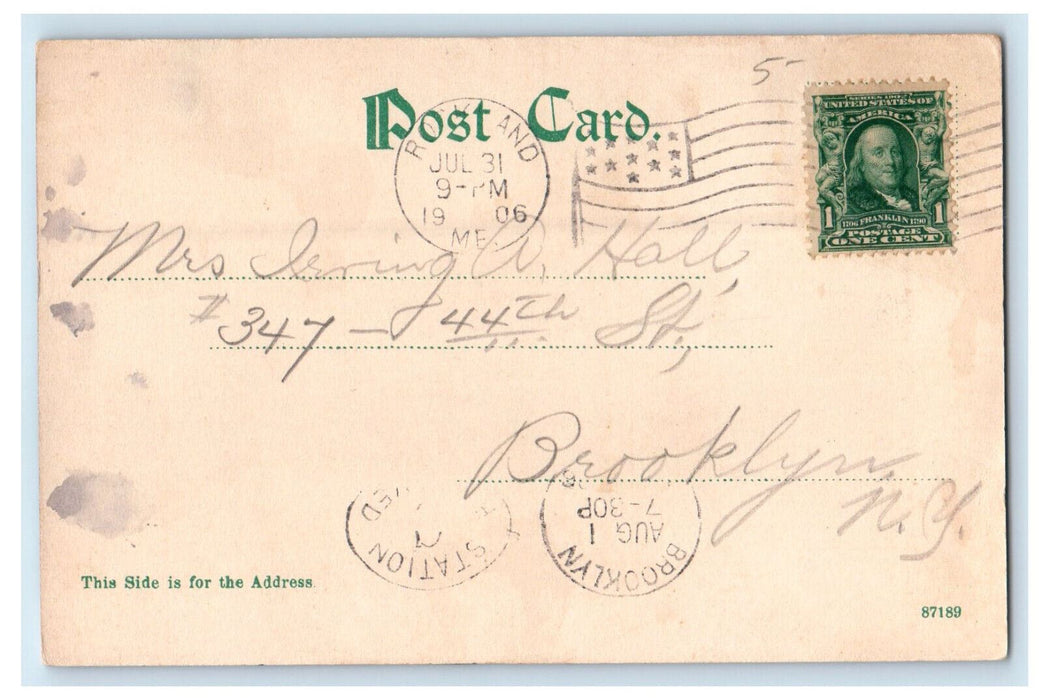 5-
Post Card.
ROCKLAND
JUL 31
9-PM
19 06
ME.
SERIES 1902
UNITED STATES OF
AMERICA
1 1706 FRANKLIN 1790 1
POSTAGE
ONE CENT
Mrs Irving A. Hall,
# 347 - 44th St,
Brooklyn,
N.Y.
BROOKLYN
AUG 1
7-30P
06
STATION
This Side is for the Address.
87189